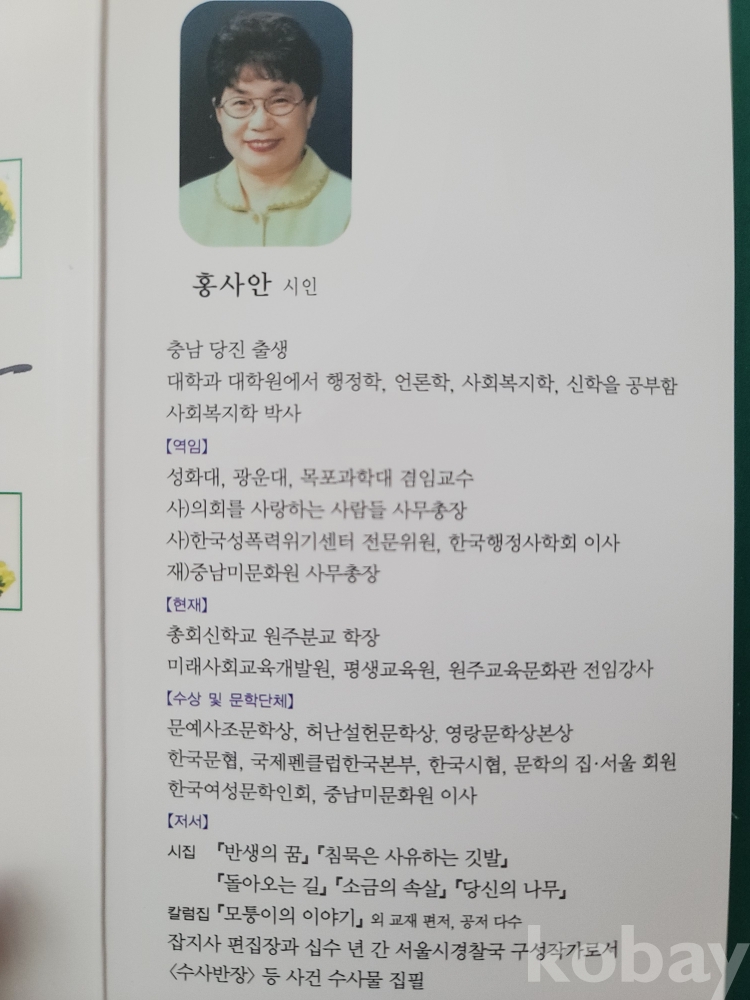 홍사안 시인
충남 당진 출생
대학과 대학원에서 행정학, 언론학, 사회복지학, 신학을 공부함
사회복지학 박사
【역임】
성화대, 광운대, 목포과학대 겸임교수
사)의회를 사랑하는 사람들 사무총장
사)한국성폭력위기센터 전문위원, 한국행정사학회 이사
재)중남미문화원 사무총장
【현재】
총회신학교 원주분교 학장
미래사회교육개발원, 평생교육원, 원주교육문화관 전임강사
【수상 및 문학단체】
문예사조문학상, 허난설헌문학상, 영랑문학상본상
한국문협, 국제펜클럽한국본부, 한국시협, 문학의 집·서울 회원
한국여성문학인회, 중남미문화원 이사
【저서】
시집 『반생의 꿈』『침묵은 사유하는 깃발』
『돌아오는 길』『소금의 속살』『당신의 나무』
칼럼집 『모퉁이의 이야기』 외 교재 편저, 공저 다수
잡지사 편집장과 십수 년 간 서울시경찰국 구성작가로서
〈수사반장〉 등 사건 수사물 집필
kobay